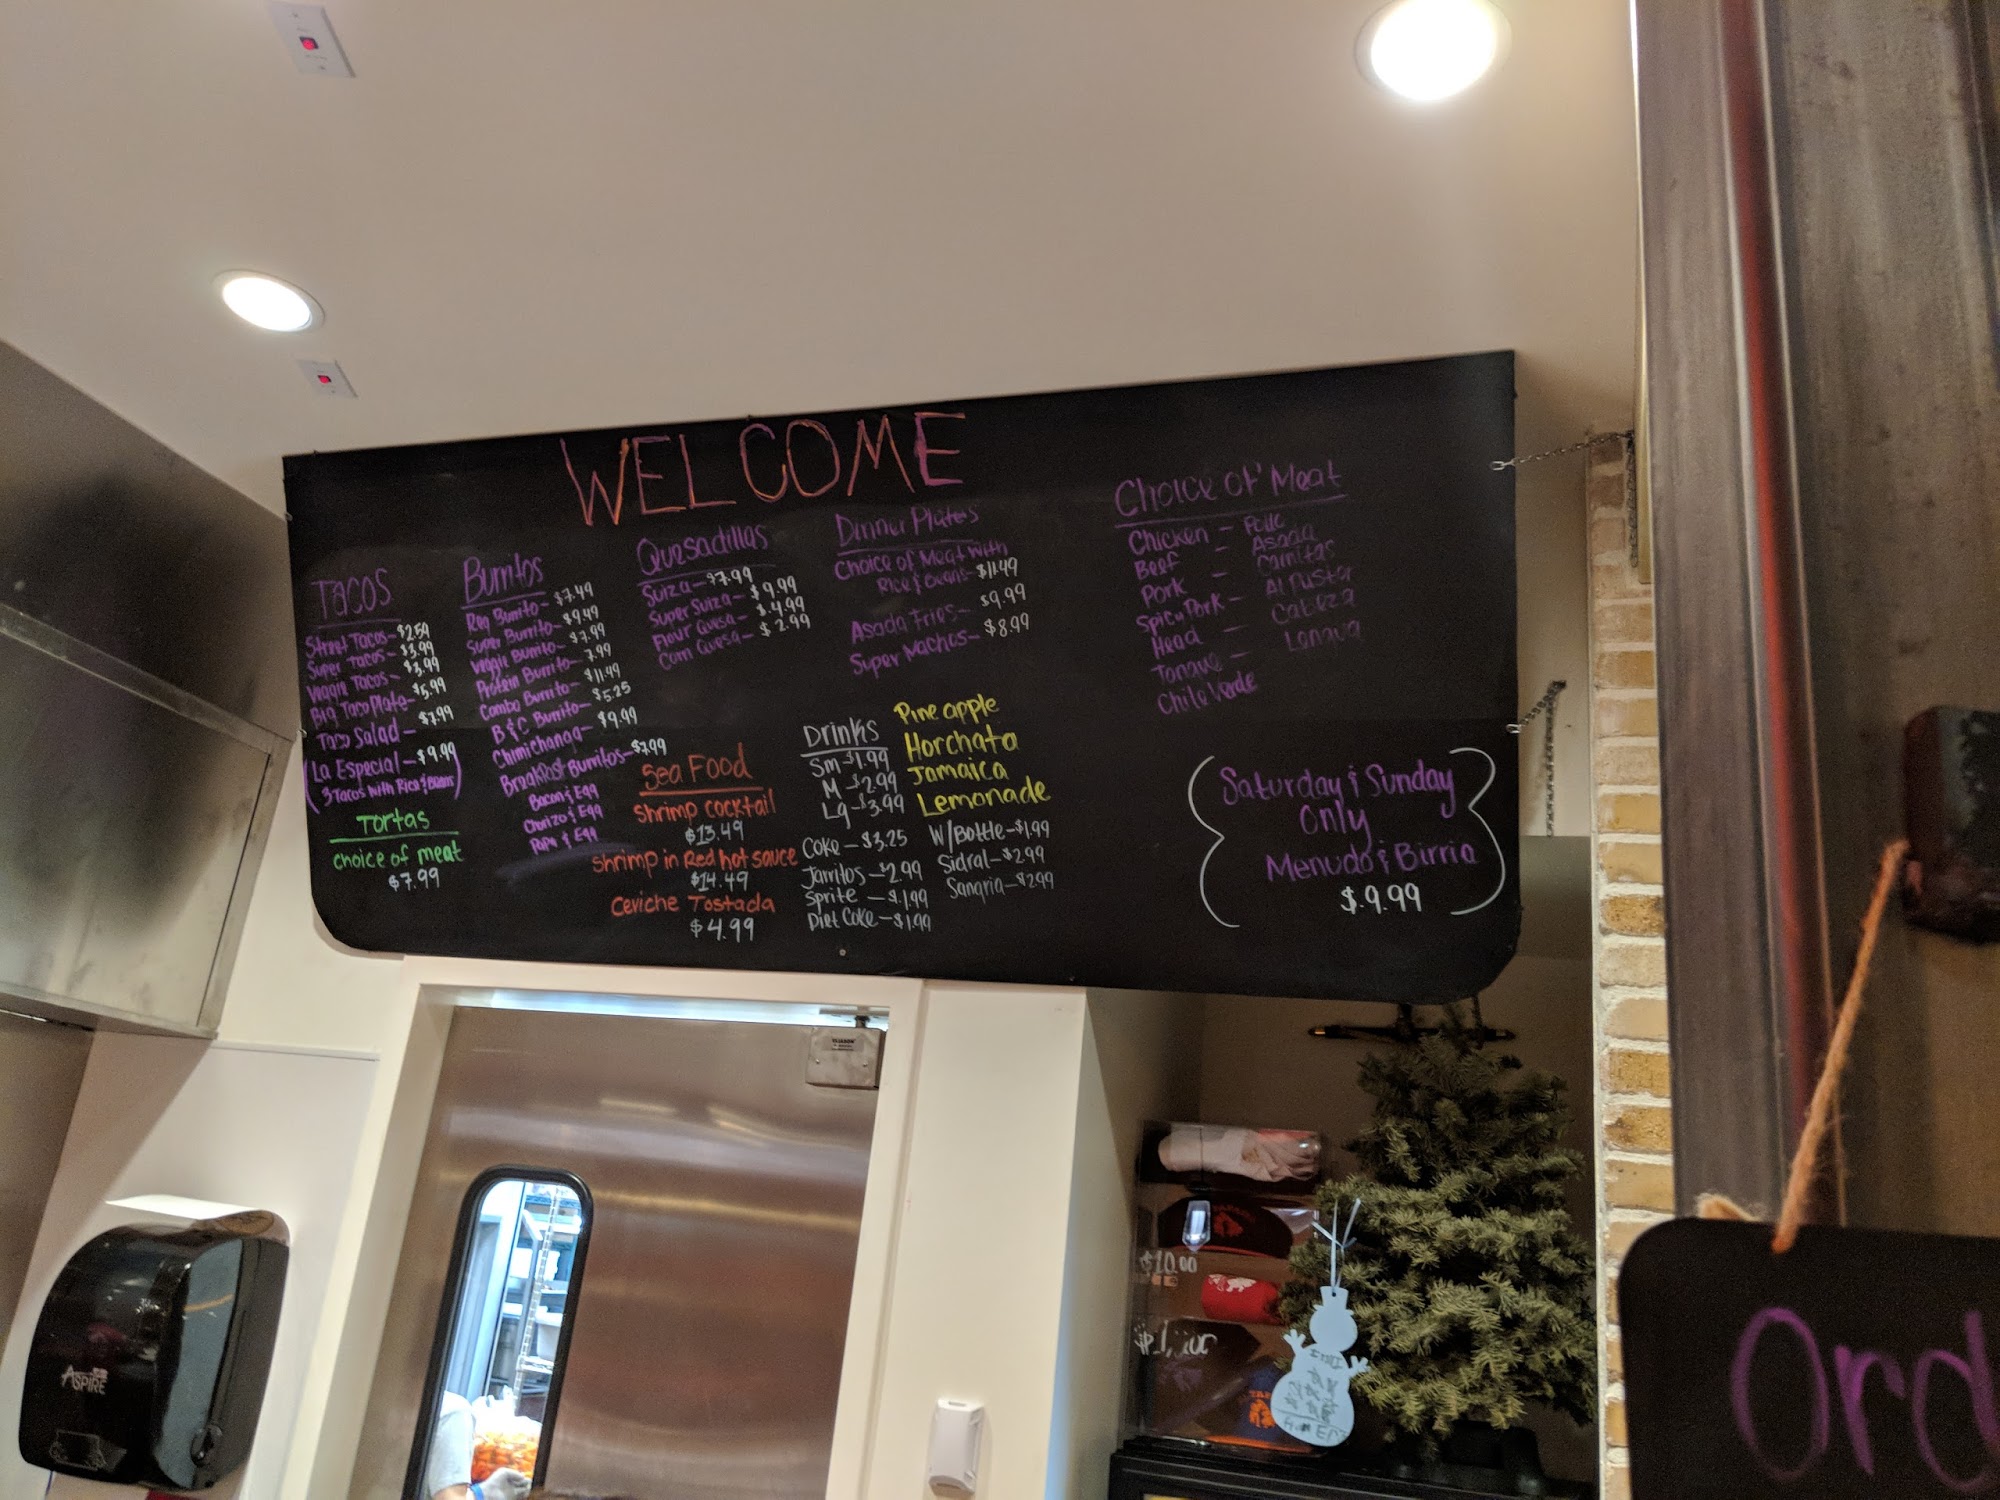 WELCOME
Tacos
Street Tacos - $2.50
Super Tacos - $3.99
Veggie Tacos - $3.99
Big Taco Plate - $5.99
Taco Salad - $7.99
(La Especial - $9.99
3 Tacos with Rice & Beans)
Tortas
choice of meat
$7.99
Burritos
Reg Burrito - $7.49
Super Burrito - $9.49
Veggie Burrito - $7.99
Protein Burrito - 7.99
Combo Burrito - $11.49
B & C Burrito - $5.25
Chimichanga - $9.99
Breakfast Burritos - $7.99
Bacon & Egg
Chorizo & Egg
Papa & Egg
Quesadillas
Suiza - $7.99
Super Suiza - $9.99
Flour Quesa - $4.99
Corn Quesa - $2.99
Sea Food
Shrimp cocktail
$13.49
Shrimp in Red hot sauce
$14.49
Ceviche Tostada
$4.99
Dinner Plates
Choice of Meat with
Rice & Beans - $11.49
Asada Fries - $9.99
Super Nachos - $8.99
Drinks
Sm $1.99
M $2.99
Lg - $3.99
Pineapple
Horchata
Jamaica
Lemonade
Coke - $3.25
Jarritos - $2.99
Sprite - $1.99
Diet Coke - $1.99
W/Bottle - $1.99
Sidral - $2.99
Sangria - $2.99
Choice of Meat
Chicken - Pollo
Beef - Asada
Pork - Carnitas
Spicy Pork - Al Pastor
Head - Cabeza
Tongue - Lengua
Chile Verde
Saturday & Sunday
Only
Menudo & Birria
$.9.99
$10.00
ASPIRE
Ord